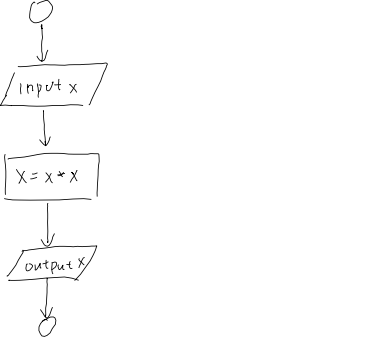 input x
X = x * x
output x